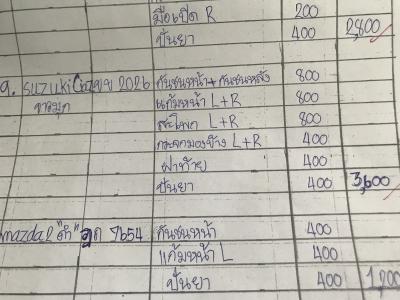 มือเปิด R 200
ปั่นยา 400 2,800
9. suzuki 2026 กันชนหน้า+กันชนหลัง 800
ขาวมุก แก้มหน้า L+R 800
L+R 800
กระจกมองข้าง L+R 400
ฝาท้าย 400
ปั่นยา 400 3,600
mazda2 "ดำ" 7654 กันชนหน้า 400
แก้มหน้า L 400
ปั่นยา 400 1,200